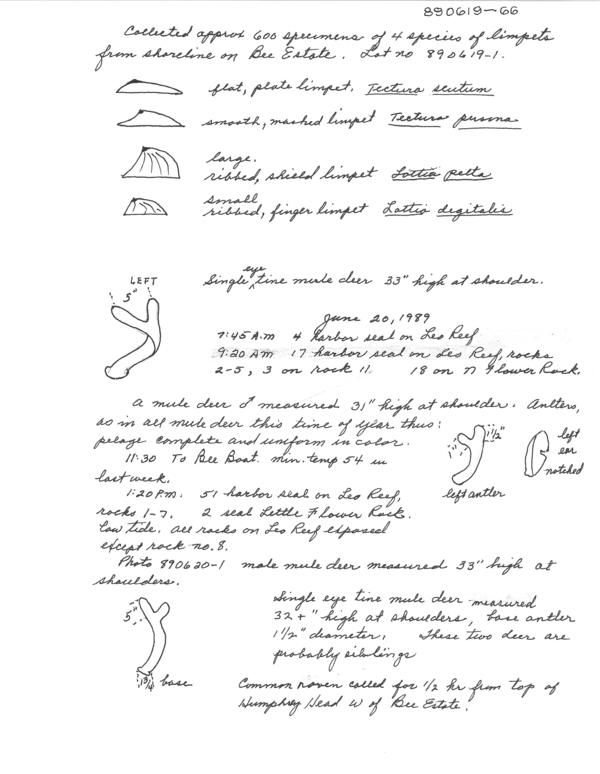 890619-66
Collected approx 600 specimens of 4 species of limpets
from shoreline on Bee Estate. Lot no 890619-1.
flat, plate limpet. Tectura scutum
smooth, masked limpet Tectura pursona
large.
ribbed, shield limpet Lottia pelta
small
ribbed, finger limpet Lottia degitalis
LEFT
5"
Single eye tine mule deer 33" high at shoulder.
June 20, 1989
7:45 A.M 4 harbor seal on Leo Reef
9:20 AM 17 harbor seal on Leo Reef, rocks
2-5, 3 on rock 11. 18 on N Flower Rock.
A mule deer ♂ measured 31" high at shoulder. Antlers,
as in all mule deer this time of year thus:
pelage complete and uniform in color.
1 1/2"
1"
left antler
left
ear
notched
11:30 To Bee Boat. min. temp 54 in
last week.
1:20 P.M. 51 harbor seal on Leo Reef,
rocks 1-7. 2 seal Little Flower Rock.
Low tide. All rocks on Leo Reef exposed
except rock no. 8.
Photo 890620-1 male mule deer measured 33" high at
shoulders.
5"
1 3/4 base
Single eye tine mule deer measured
32+" high at shoulders, base antler
1 1/2" diameter. These two deer are
probably siblings
Common raven called for 1/2 hr from top of
Humphrey Head W of Bee Estate.